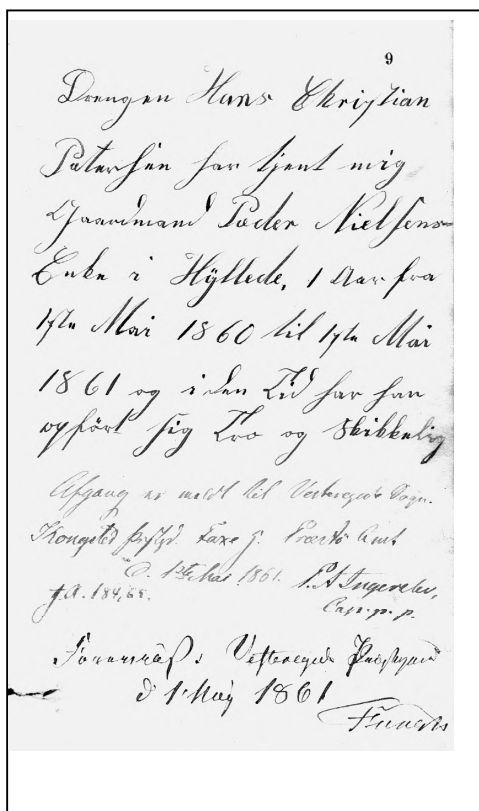 9
Drengen Hans Christian
Petersen har tjent mig
Gaardmand Peder Nielsens
Enke i Hyllede, 1 Aar fra
1ste Mai 1860 til 1ste Mai
1861 og i den Tid har han
opført sig Tro og Skikkelig
Afgang er meldt til Vesteregede Sogn.
Kongsted Faxe H. Præstø Amt
D. 1ste Mai 1861.
J.A. 184,
Cap. p. p.
Vesteregede
d 1 May 1861